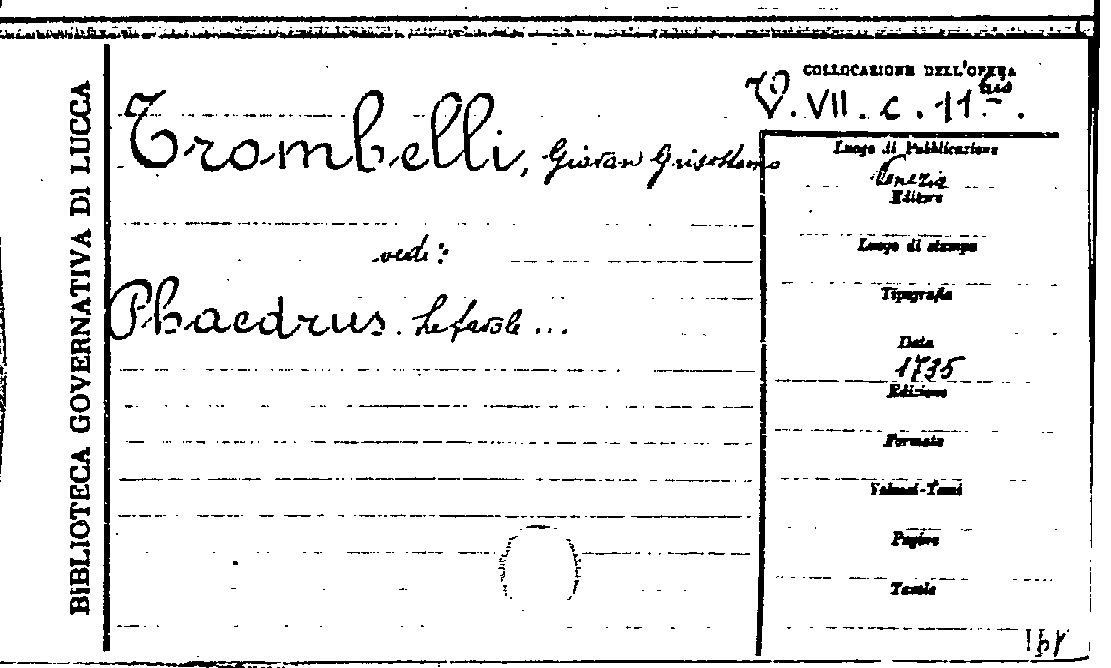 BIBLIOTECA GOVERNATIVA DI LUCCA
COLLOCAZIONE DELL'OPERA
V. VII. c. 11
Trombelli, Giovan Grisostomo
Luogo di Pubblicazione
Venezia
Editore
vedi:
Luogo di stampa
Phaedrus. Le favole ...
Tipografia
Data
1735
Edizione
Formato
Volumi-Tomi
Pagine
Tavole